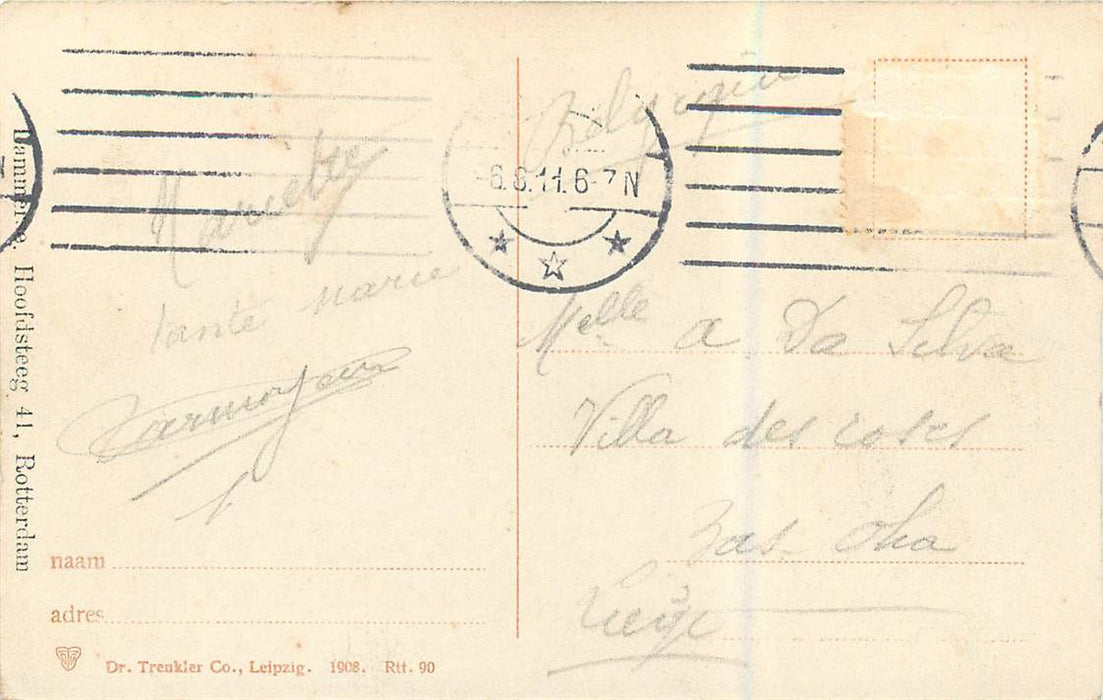 Belgique
6.8.11.6-7N
Mariette
tante Marie
Melle A. Da Silva
Villa des roses
Bas oha
Liège
naam
adres
Dr. Trenkler Co., Leipzig. 1908. Rtt. 90
Hoofdsteeg 41, Rotterdam